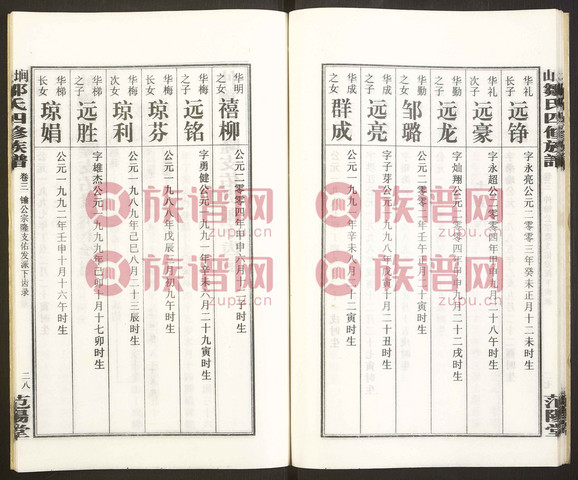 山鄒氏四修族譜
范陽堂
华礼之子 远铮 字永亮公元二零零三年癸未正月十二未时生
华礼之子 远豪 字永超公元二零零四年甲申九月二十八午时生
华勤之子 远龙 字灿翔公元二零零四年甲申九月二十二戌时生
华勤之女 邹璐 公元二零零二年
华成之子 远亮 字子芽公元一九九八年戊寅十月二十丑时生
华成之女 群成 公元一九九一年辛未八月二十二寅时生
华明之女 禧柳 公元二零零四年甲申六月十三子时生
华梅之子 远铭 字勇健公元一九九一年辛未六月二十九寅时生
华梅次女 琼芬 公元一九八八年戊辰
华梅次女 琼利 公元一九八九年己巳八月二十三辰时生
华梯之子 远胜 字雄杰公元一九九九年己卯十月十七卯时生
华梯长女 琼娟 公元一九九二年壬申十月十六午时生
垌鄒氏四修族譜
卷三
二八
范陽堂
族谱网
zupu.cn